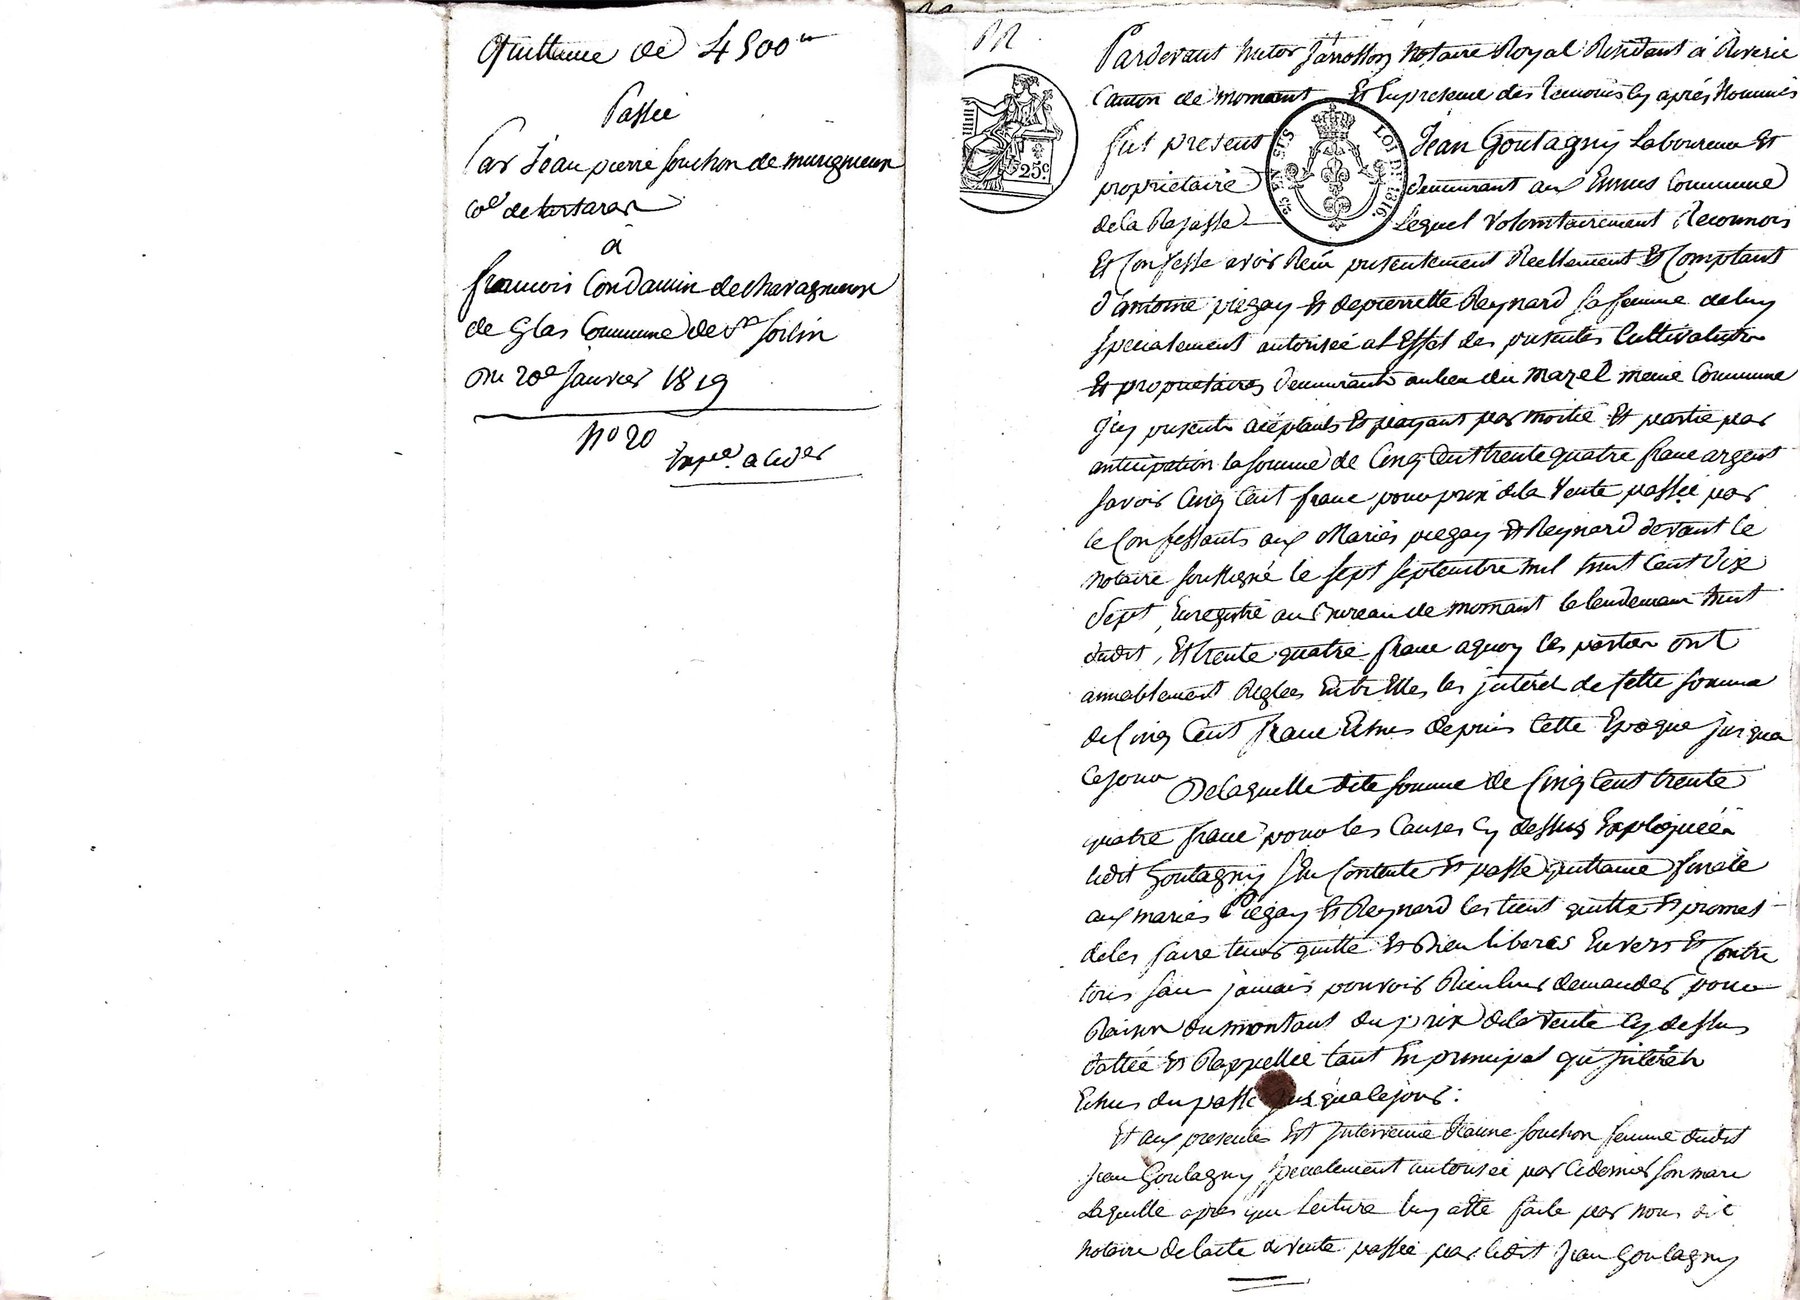 Quittance de 4500ᵗᵗ
Passée
Par Jean pierre souchon de murigneux
co.ᵉ de tartaras
à
francois Condamin de chavagneux
de Glas Commune de Sᵗ Sorlin
Du 20e Janvier 1819
N° 20
Exp.ée a Cider
Pardevant victor Jânosson Notaire Royal Résidant à Riverie
Canton de mornant Et En presence des temoins Cy aprés Nommés
fut present Jean Goutagny Laboureur Et
proprietaire demeurant aux Commune
de la Rajasse Lequel volontairement Reconnois
Et Confesse avoir Reçu presentement Reellement Et Comptant
d'antoine piegay Et de pierrette Reynard sa femme de luy
specialement autorisée a l'Effet des presentes Cultivateurs
Et proprietaires demeurants au lieu du mazel meme Commune
Icy presents acceptants Et payants par moitié Et partie par
anticipation la somme de Cinq Cent trente quatre franc argent
savoir Cinq Cent franc pour prix de la Vente passée par
le Confessants aux Mariés piegay Et Reynard devant le
notaire soussigné le sept septembre mil huit Cent dix
sept, Enregistré au Bureau de mornant le lendemain huit
dudit, Et trente quatre franc a quoy les parties ont
amiablement Reglees Entr'Elles les jnteret de sette somme
de Cinq Cent franc Echus depuis Cette Epoque jusqua
Cejour De laquelle dite somme de Cinq Cent trente
quatre franc pour les Causes Cy dessus Expliquéé
ledit Goutagny sEn Contente Et passe quittance finale
aux mariés Piegay Et Reynard les tient quitte Et promet
de les faire tenir quitte Et Bien liberés Envers Et Contre
tous sans jamais pouvoir Rien leur demander pour
Raison du montant du prix de la vente Cy dessus
dattée Et Rappellée tant En principal qu'jnterets
Echus du passé jusqualejour:
Et aux presentes Est Intervenue Jeanne souchon femme dudit
Jean Goutagny specialement autorisée par Ce dernier son mari
Laquelle apres que Lecture luy a Eté faite par nous dit
notaire de lacte de vente passée par ledit Jean Goutagny
25 c
LOI DE 1816.